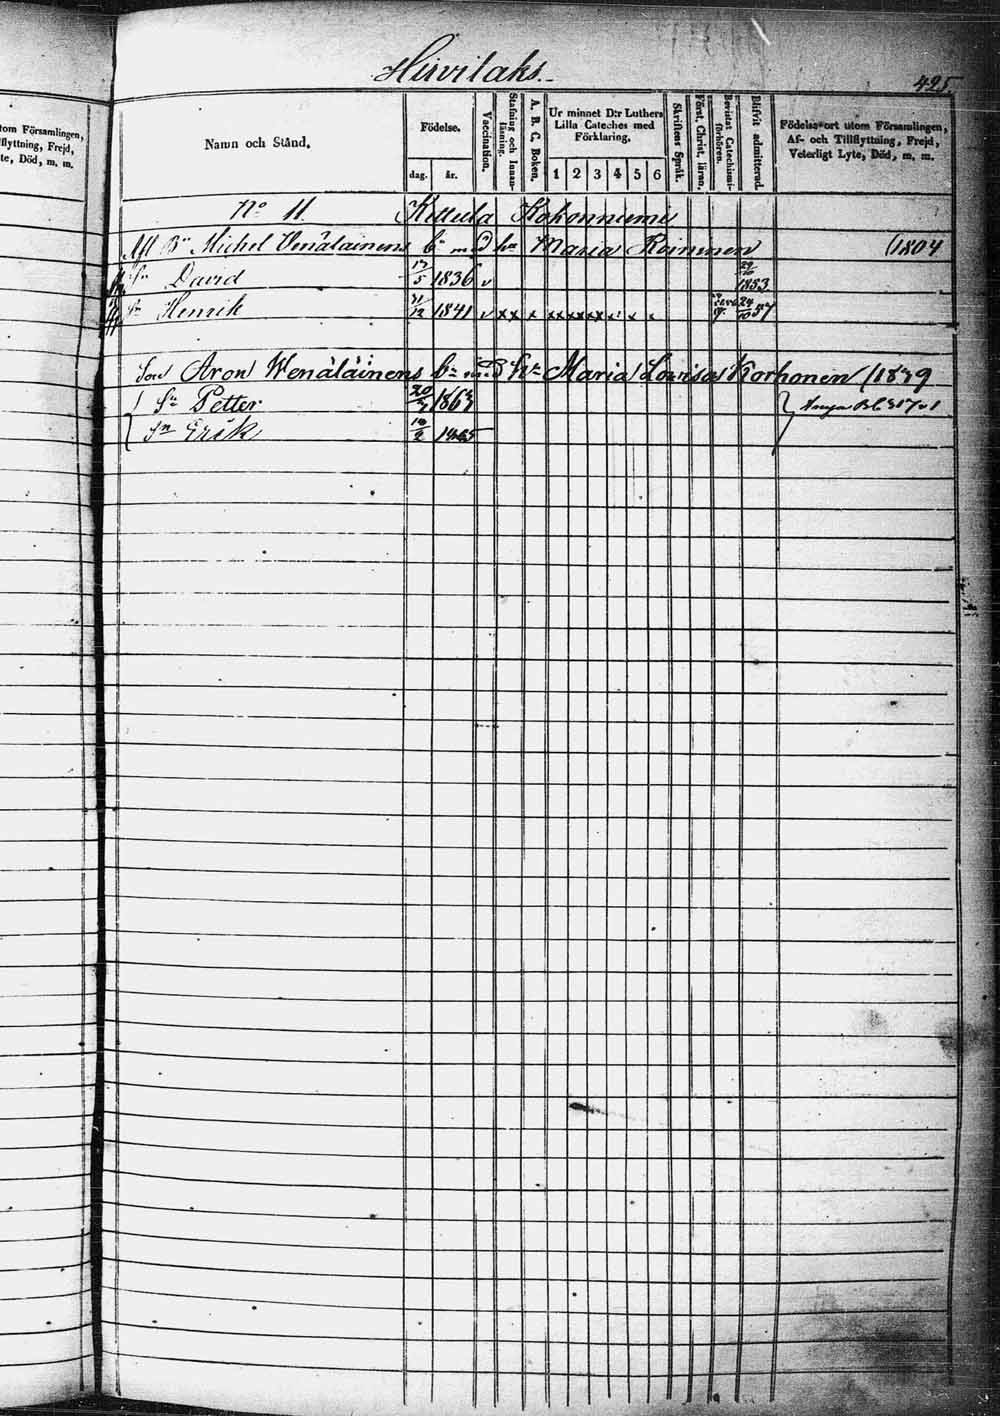 Hirvilaks.
425.
tom Församlingen,
Tillflyttning, Frejd,
te, Död, m. m.
Namn och Stånd.
Födelse.
dag. år.
Vaccination.
Stafning och Innanläsning.
A. B. C. Boken.
Ur minnet D:r Luthers Lilla Cateches med Förklaring.
1 2 3 4 5 6
Skriftens Språk.
Först. Christ. läran.
Bevistat Catechismiförhören.
Blifvit admitterad.
Födelse-ort utom Församlingen,
Af- och Tillflyttning, Frejd,
Veterligt Lyte, Död, m. m.
No 11. Kettula Kohonniemi
Afl Bn Michel Venäläinens bn med hu Maria Roininen (1804
Sn David 17/5 1836 v 29/10 1853
Sn Henrik 21/12 1841 v x x x x x x x x x x 24/10 57
Son Aron Wenäläinens bn med hu Maria Lovisa Korhonen (1839
Sn Petter 1863
Sn Erik